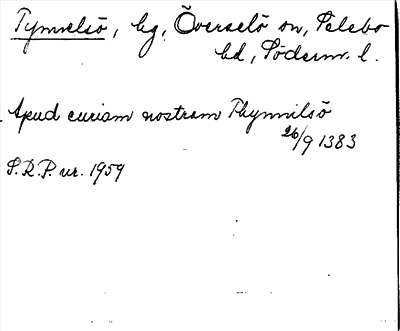 Tynnelsö, bg, Överselö sn, Selebo
hd, Söderm. l.
Apud curiam nostram Thynnilsö
26/9 1383
S.R.P. nr. 1959